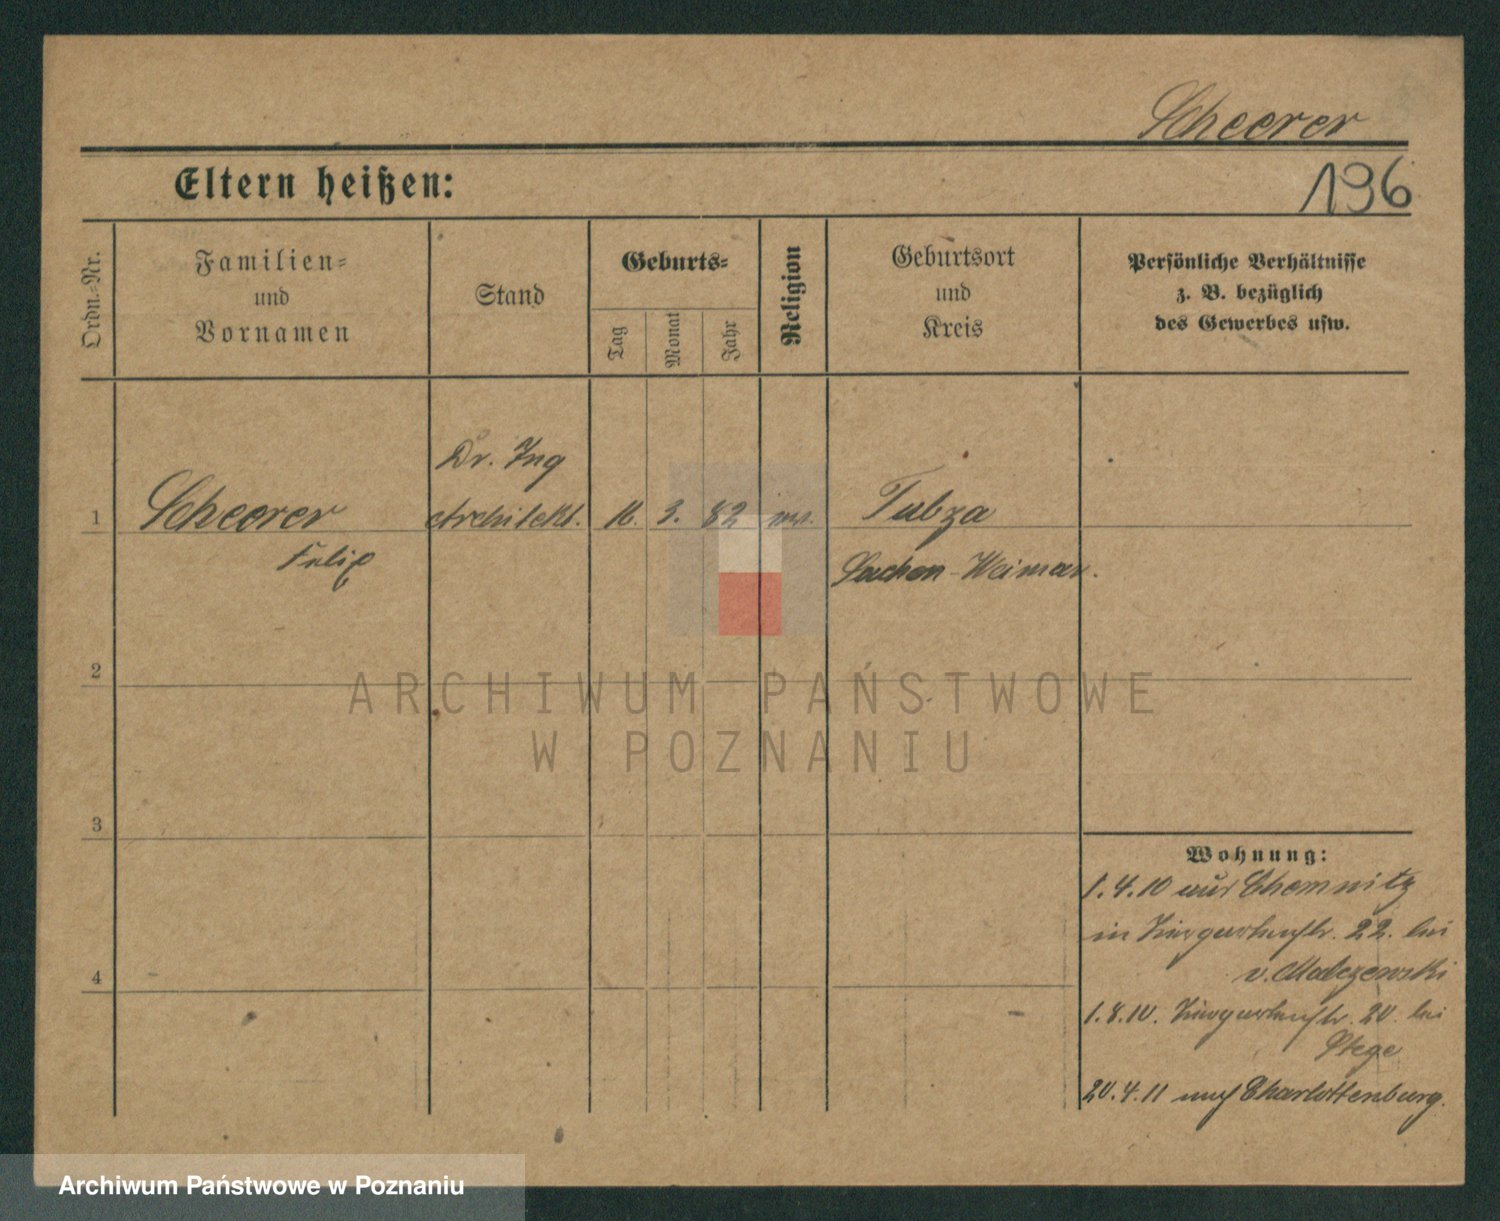 Scheerer
Eltern heißen:
196
Ordn.-Nr.
Familien-
und
Vornamen
Stand
Geburts-
Tag
Monat
Jahr
Religion
Geburtsort
und
Kreis
Persönliche Verhältnisse
z. B. bezüglich
des Gewerbes usw.
1
Scheerer
Felix
Dr. Ing
Architekt.
16. 3. 82
Tabza
Sachsen-Weimar.
2
3
4
Wohnung:
1.4.10 aus Chemnitz
in Tiergartenstr. 22. bei
v. Malczewski
1.8.10. Tiergartenstr. 20 bei
Stege
20.4.11 nach Charlottenburg.
ARCHIWUM PAŃSTWOWE
W POZNANIU
Archiwum Państwowe w Poznaniu